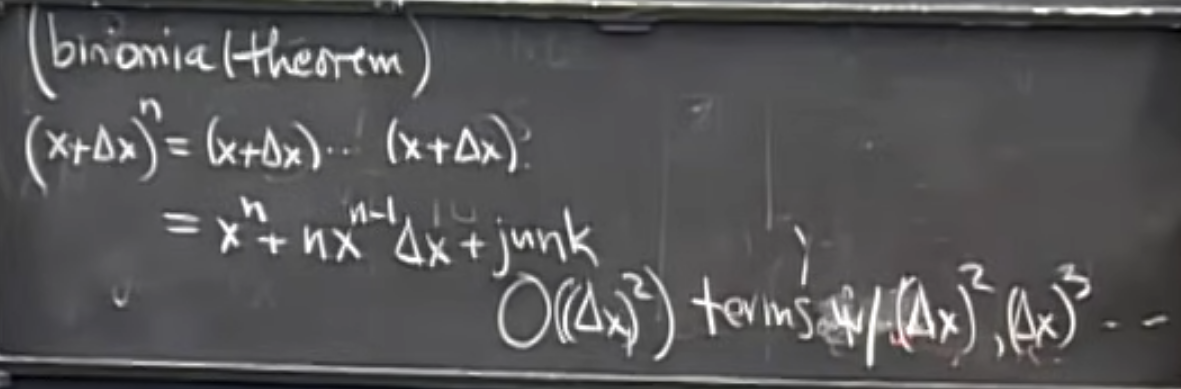 (binomial theorem)
(x+Δx)ⁿ = (x+Δx)⋯ (x+Δx)
= xⁿ + nxⁿ⁻¹Δx + junk
O((Δx)²) terms w/ (Δx)², (Δx)³ ---